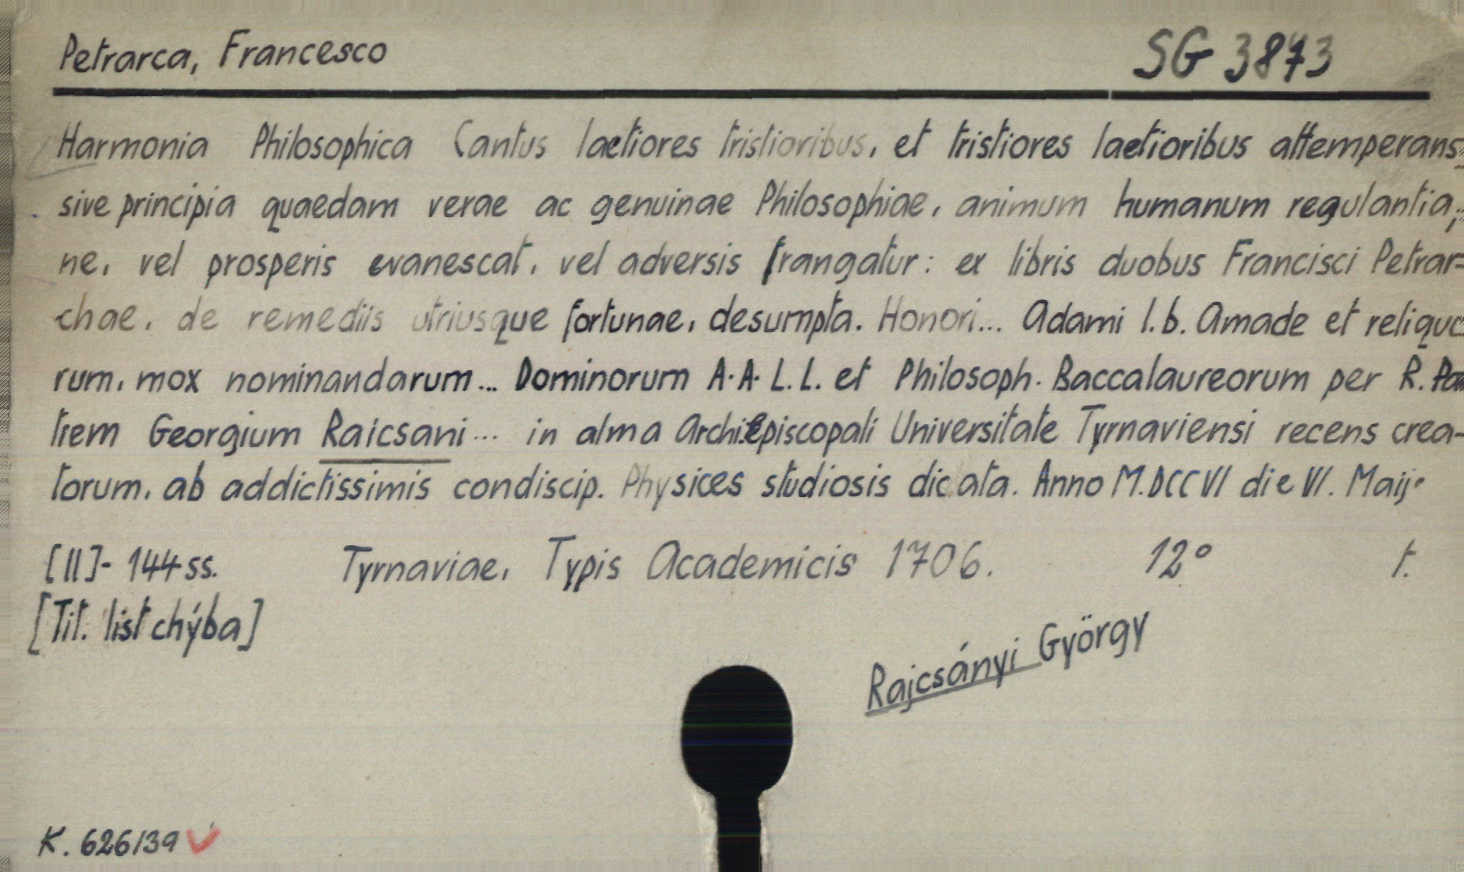 Petrarca, Francesco SG 3873
Harmonia Philosophica Cantus laetiores tristioribus, et tristiores laetioribus attemperans,
sive principia quaedam verae ac genuinae Philosophiae, animum humanum regulantia,
ne, vel prosperis evanescat, vel adversis frangatur: ex libris duobus Francisci Petrar=
chae, de remediis utriusque fortunae, desumpta. Honori... Adami l.b. Amade et reliquo
rum, mox nominandarum... Dominorum A.A.L.L. et Philosoph. Baccalaureorum per R. Pa
trem Georgium Raicsani... in alma ArchiEpiscopali Universitate Tyrnaviensi recens crea-
torum, ab addictissimis condiscip. Physices studiosis dicata. Anno M.DCCVI die VI. Maij.
[II]- 144 ss. Tyrnaviae, Typis Academicis 1706. 12° t.
[Tit. list chýba]
Rajcsányi György
K. 626/39